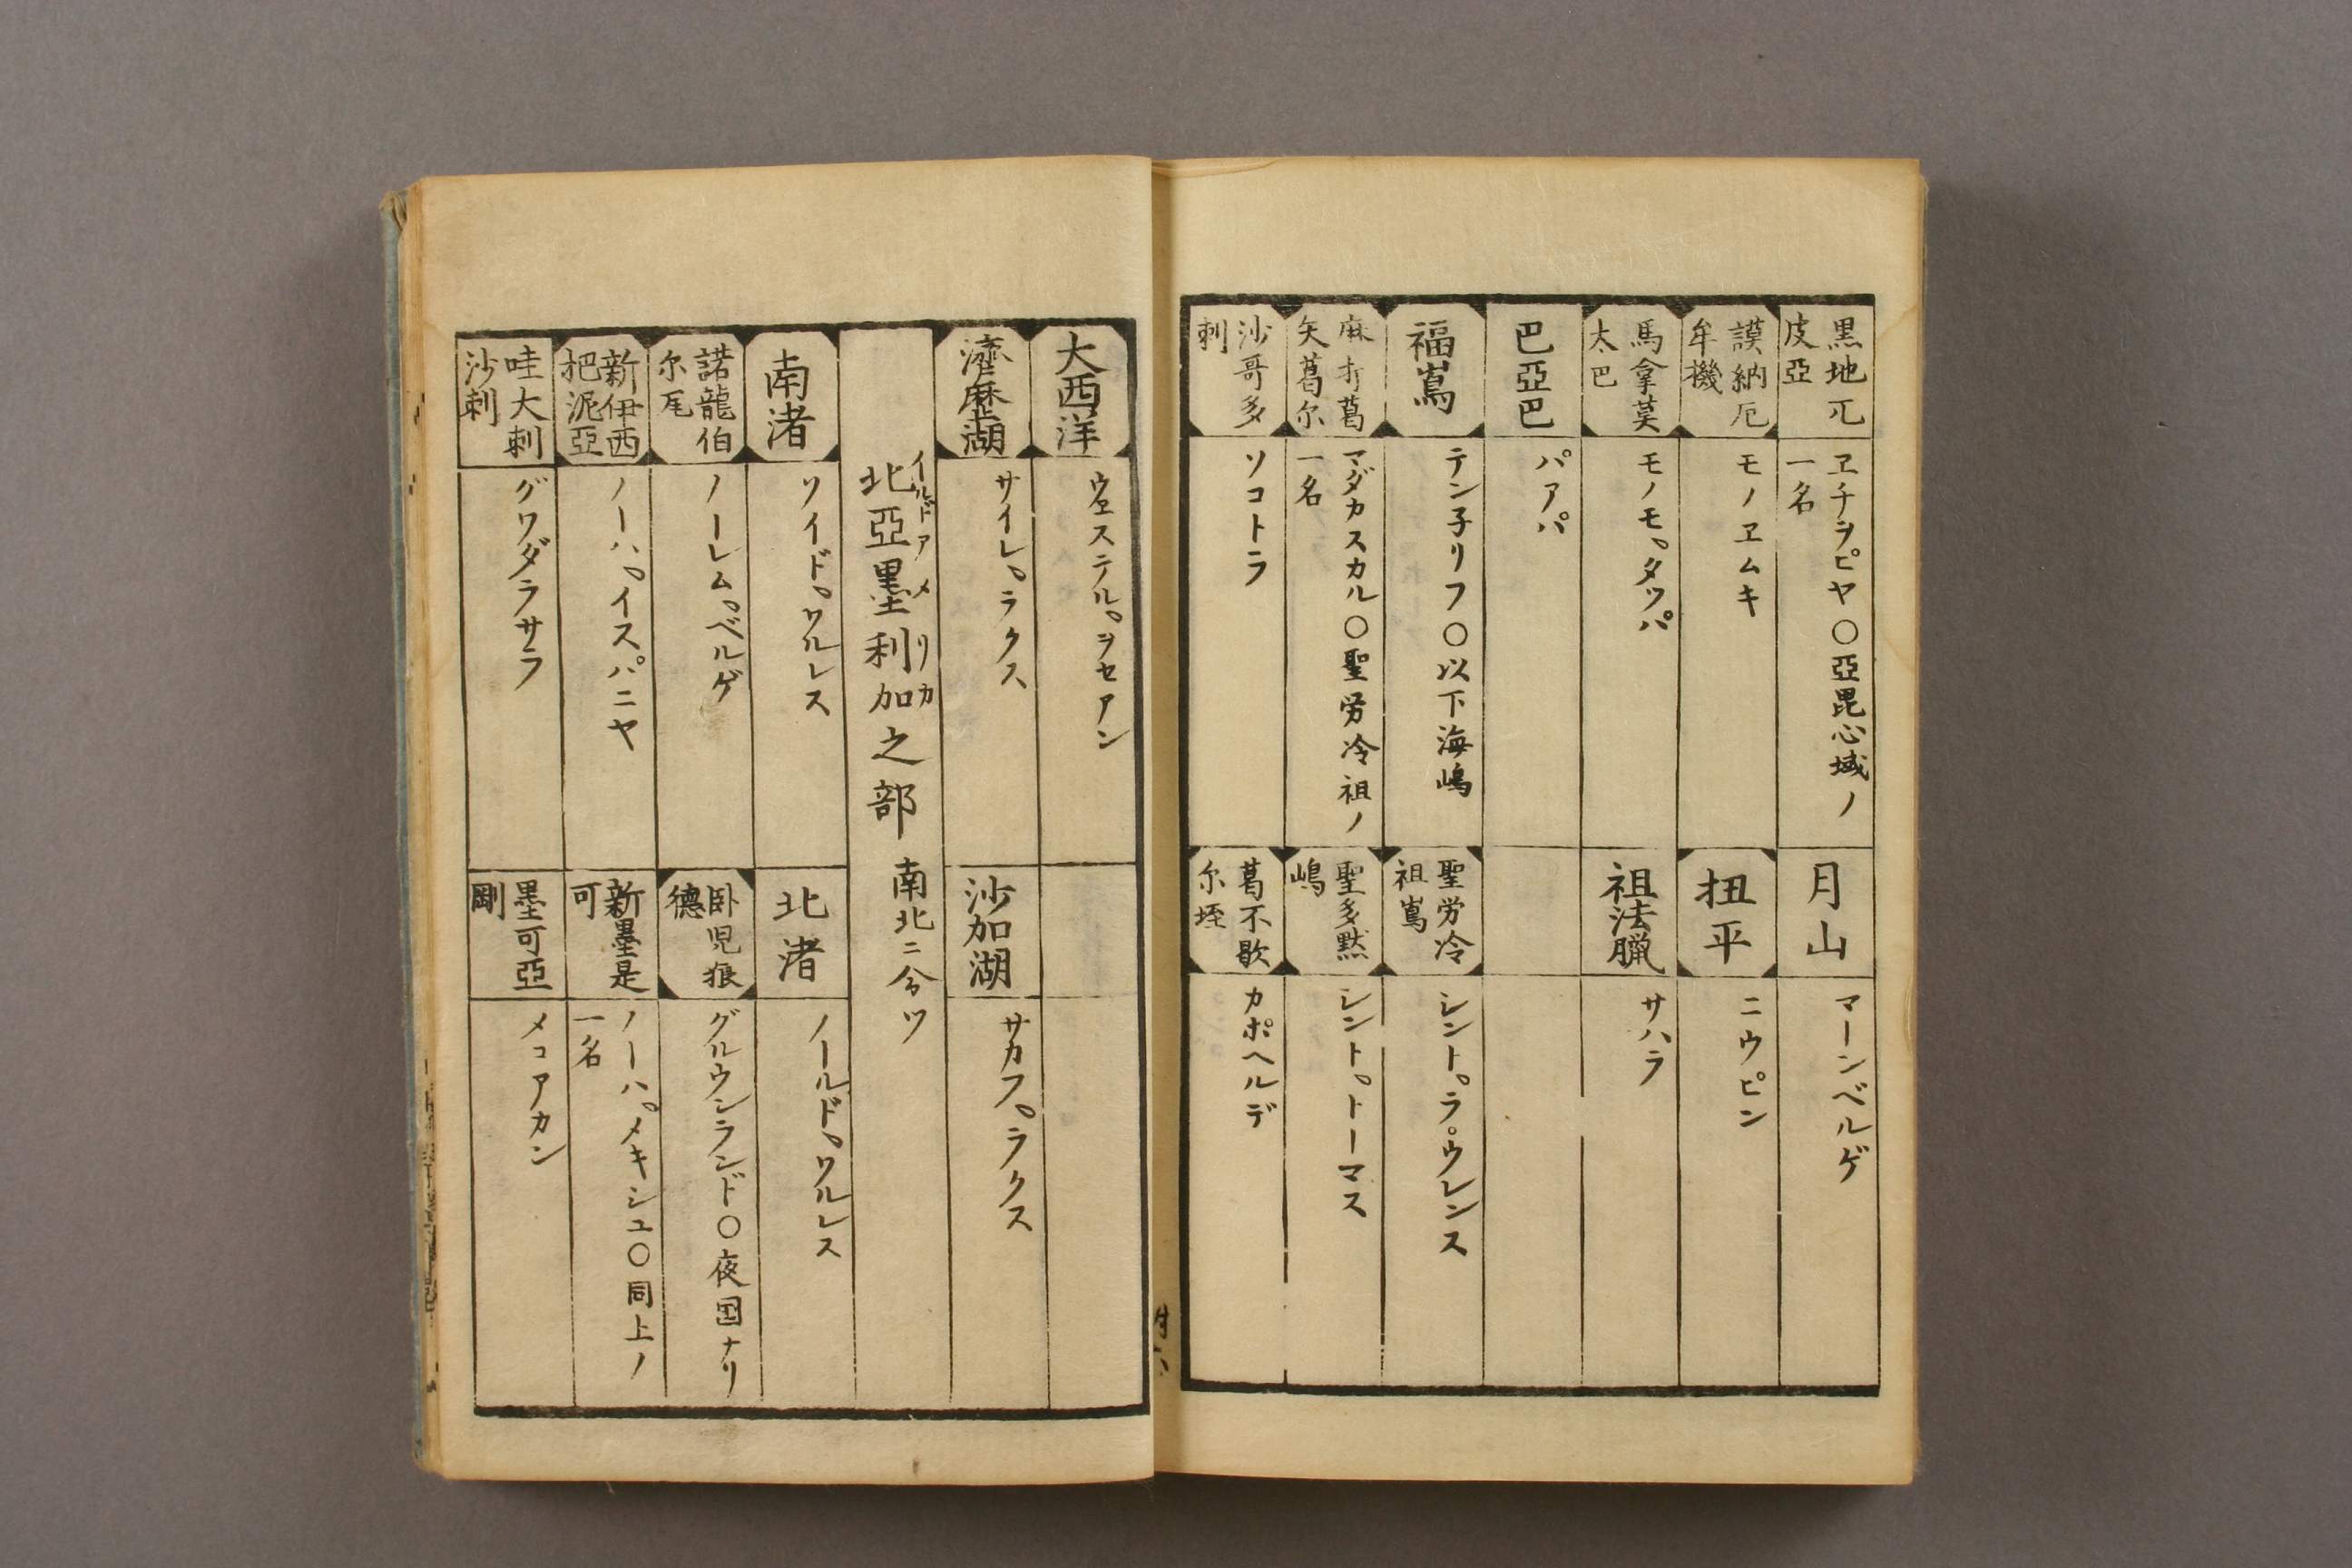 黒地兀皮亞
ヱチヲピヤ〇亞毘心域ノ一名
月山
マーンベルゲ
謨納厄牟機
モノヱムキ
扭平
ニウピン
馬拿莫太巴
モノモ、タッパ
祖法臘
サハラ
巴亞巴
パアパ
福嶌
テン子リフ〇以下海嶋
聖労冷祖嶌
シント。ラ。ウレンス
麻打葛矢葛尔
マダカスカル〇聖労冷祖ノ一名
聖多黙嶋
シント。トーマス
沙哥多剌
ソコトラ
葛不歇尔垤
カボヘルデ
大西洋
ウェステル。ヲセアン
濟歷湖
サイレ。ラクス
沙加湖
サカフ。ラクス
北亞墨利加之部 南北ニ分ツ
イルドアメリカ
南渚
ソイド。ワルレス
北渚
ノールド。ワルレス
諾龍伯尔尾
ノーレム。ベルゲ
臥児狼德
グルウンランド〇夜国ナリ
新伊西把泥亞
ノーハ。イスパニヤ
新墨是可
ノーハ。メキシユ〇同上ノ一名
哇大剌沙剌
グワダラサラ
墨可亞剛
メコアカン